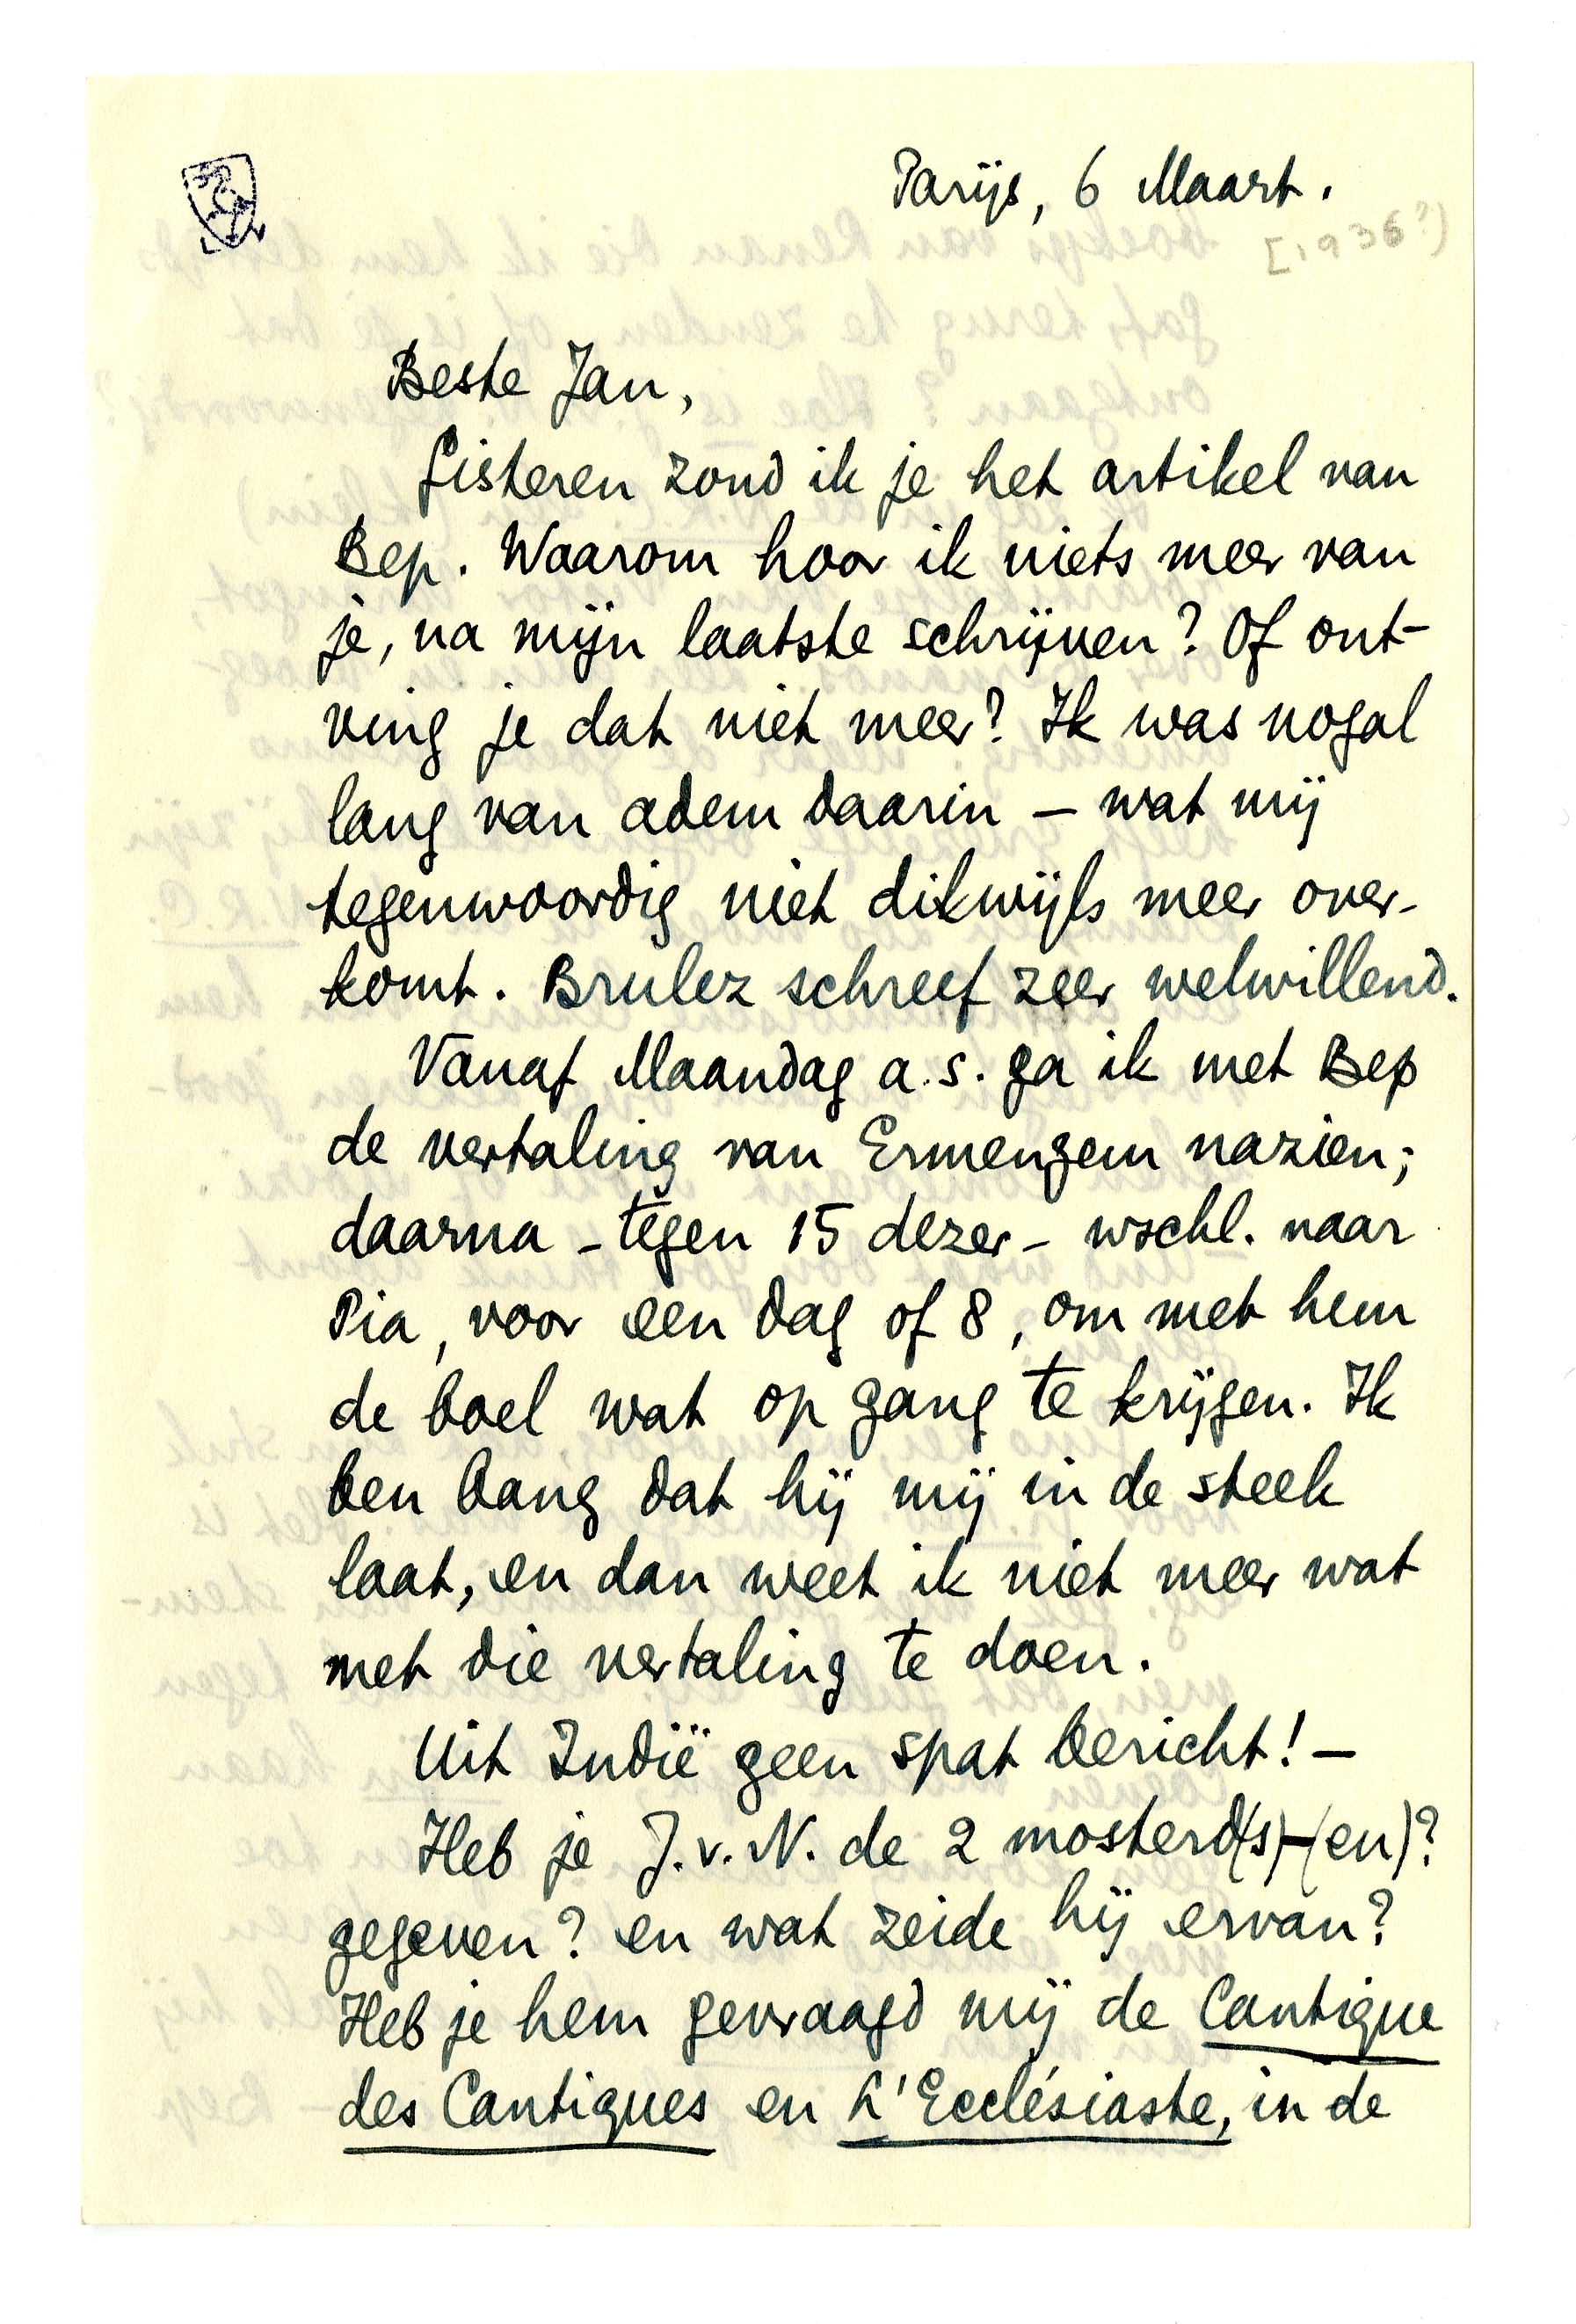 Parijs, 6 Maart.
[1936?)
Beste Jan,
Gisteren zond ik je het artikel van
Bep. Waarom hoor ik niets meer van
je, na mijn laatste schrijven? Of ont-
ving je dat niet meer? Ik was nogal
lang van adem daarin – wat mij
tegenwoordig niet dikwijls meer over-
komt. Brulez schreef zeer welwillend.
Vanaf Maandag a.s. ga ik met Bep
de vertaling van Ermengem nazien;
daarna – tegen 15 dezer – wschl. naar
Pia, voor een dag of 8, om met hem
de boel wat op gang te krijgen. Ik
ben bang dat hij mij in de steek
laat, en dan weet ik niet meer wat
met die vertaling te doen.
Uit Indië geen spat bericht! –
Heb je J.v.N. de 2 mosterd(s)-(en)?
gegeven? en wat zeide hij ervan?
Heb je hem gevraagd mij de Cantique
des Cantiques en L'Ecclésiaste, in de